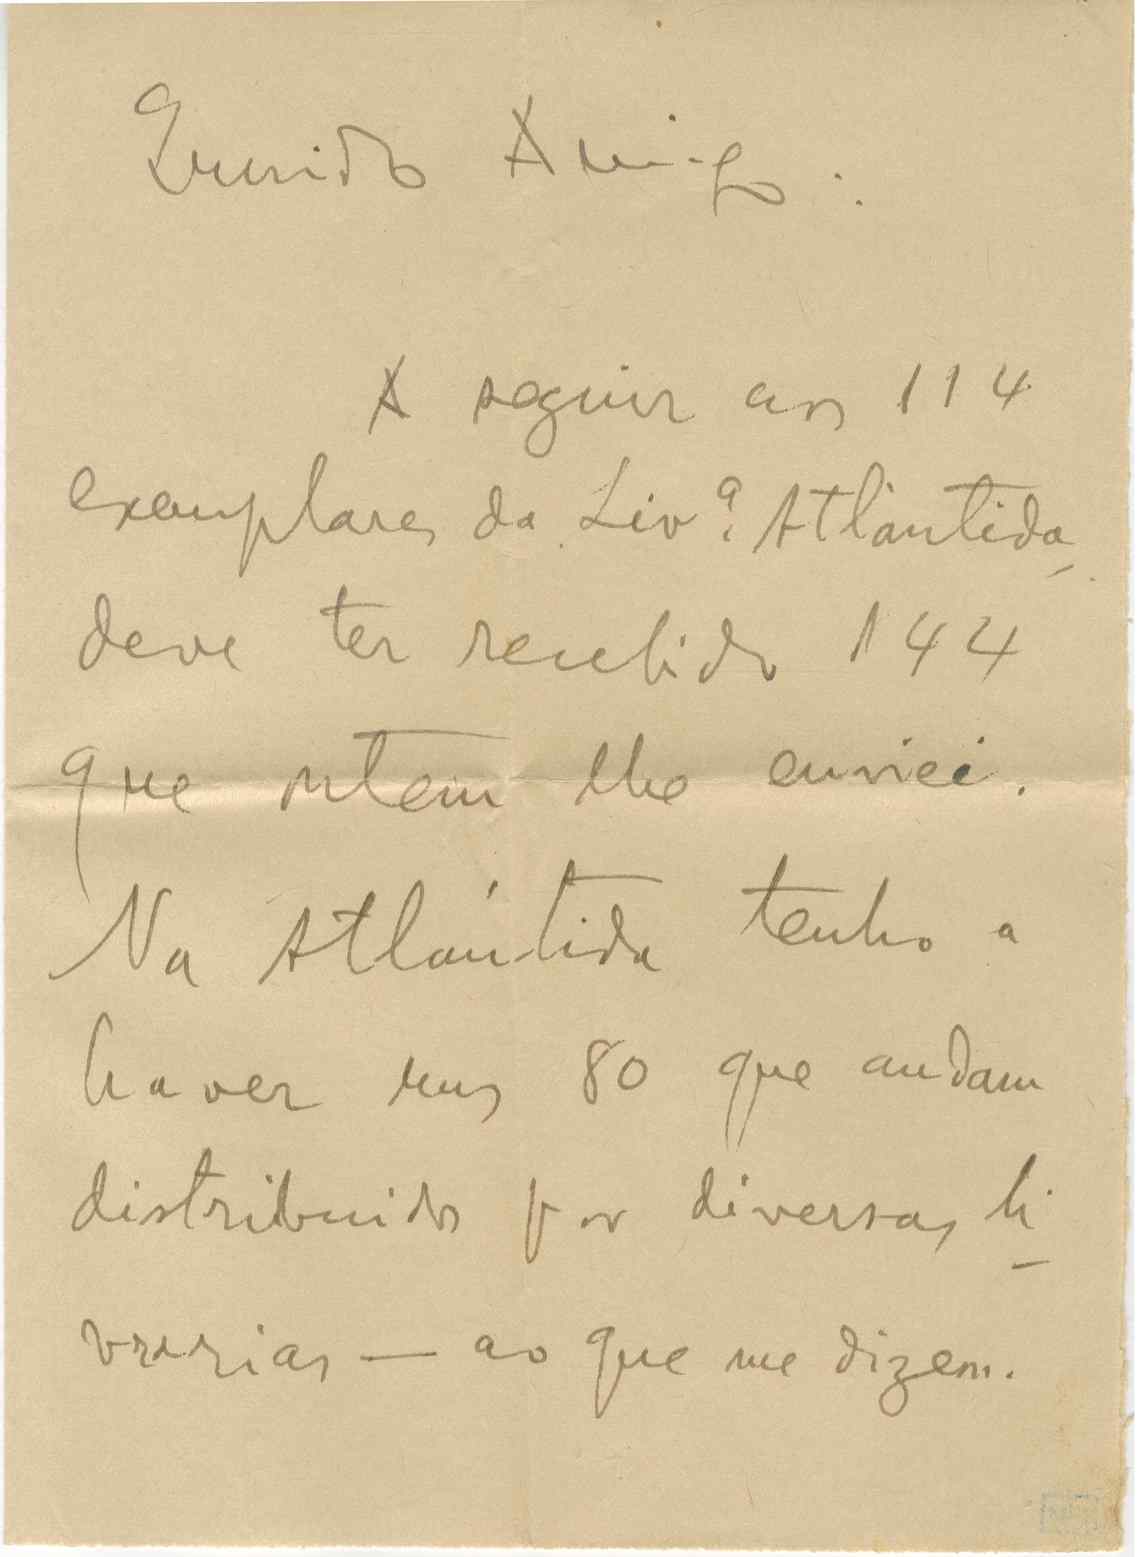 Querido Amigo:
A seguir aos 114
exemplares da Livª. Atlântida,
deve ter recebido 144
que ontem lhe enviei.
Na Atlântida tenho a
haver uns 80 que andam
distribuidos por diversas li-
vrarias — ao que me dizem.